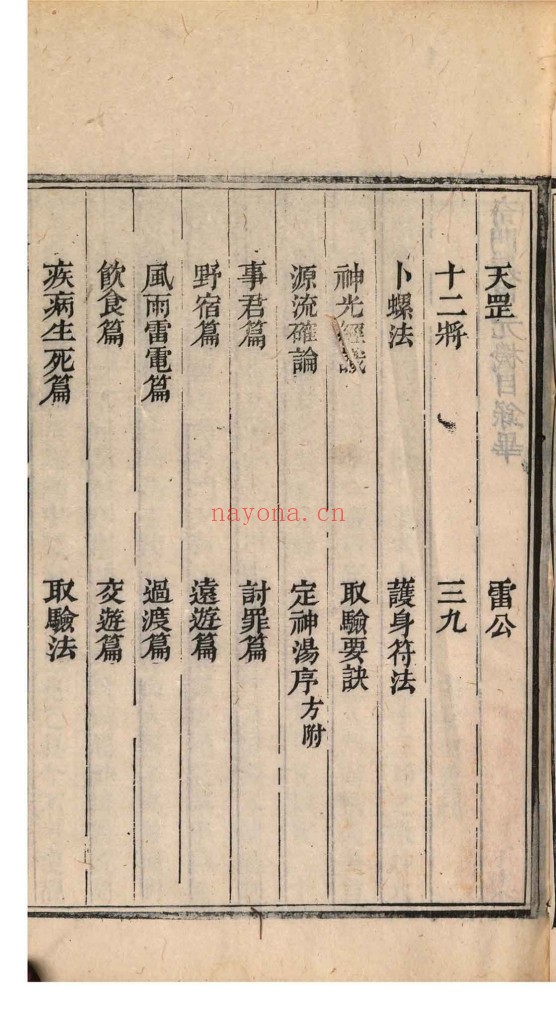 天罡　雷公
十二將　三九
卜螺法　護身符法
神光經　取驗要訣
源流確論　定神湯序方附
事君篇　討罪篇
野宿篇　遠遊篇
風雨雷電篇　過渡篇
飲食篇　交遊篇
疾病生死篇　取驗法
nayona.cn